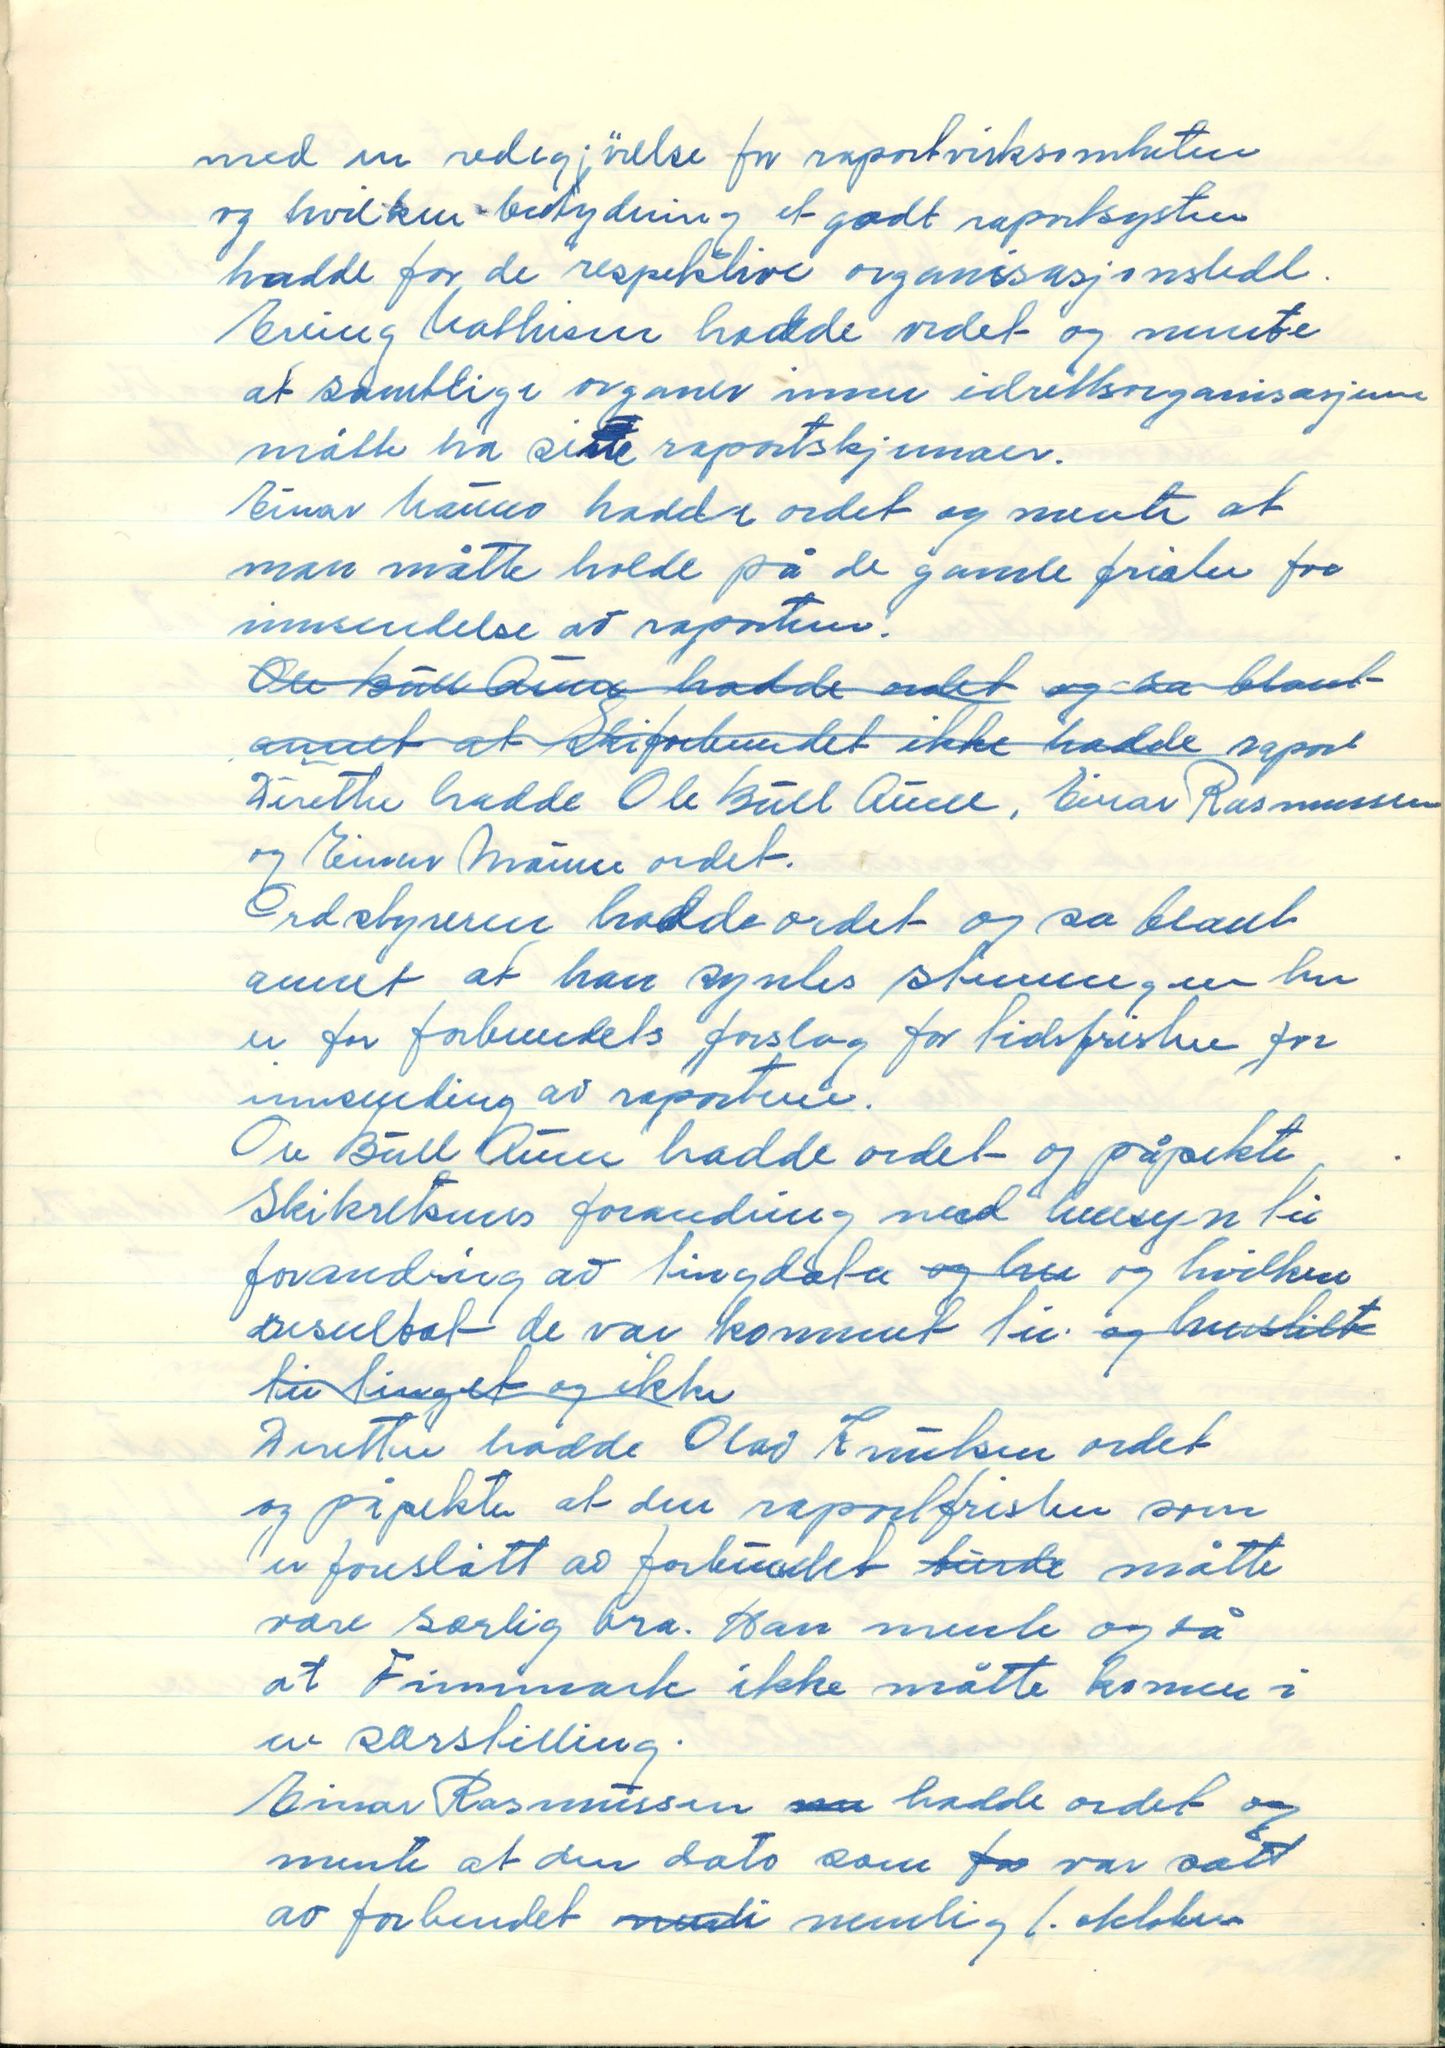 med en redegjörelse for raportvirksomheten
og hvilken betydning et godt raportsystem
hadde for de respektive organisasjonsledd.
Erling Mathisen hadde ordet og mente
at samtlige organer innen idrettsorganisasjonen
måtte ha siste raportskjemaer.
Einar Mauno hadde ordet og mente at
man måtte holde på de gamle frister for
innsendelse av raporten.
Ole Bull Aune hadde ordet og sa blant
annet at Skiforbundet ikke hadde raport
Deretter hadde Ole Bull Aune, Einar Rasmussen
og Einar Mauno ordet.
Ordstyreren hadde ordet og sa blant
annet at han syntes stemningen her
er for forbundets forslag for tidsfristen for
innsending av raportene.
Ole Bull Aune hadde ordet og påpekte
Skikretsens forandring med hensyn til
forandring av tingdata og hen og hvilken
resultat de var kommet til. og henstilte
til tinget og ikke
Deretter hadde Olav Knutsen ordet
og påpekte at den raportfristen som
er foreslått av forbundet burde måtte
være særlig bra. Han mente også
at Finnmark ikke måtte komme i
en særstilling.
Einar Rasmussen hadde ordet og
mente at den dato som for var satt
av forbundet nemli nemlig 1. oktober